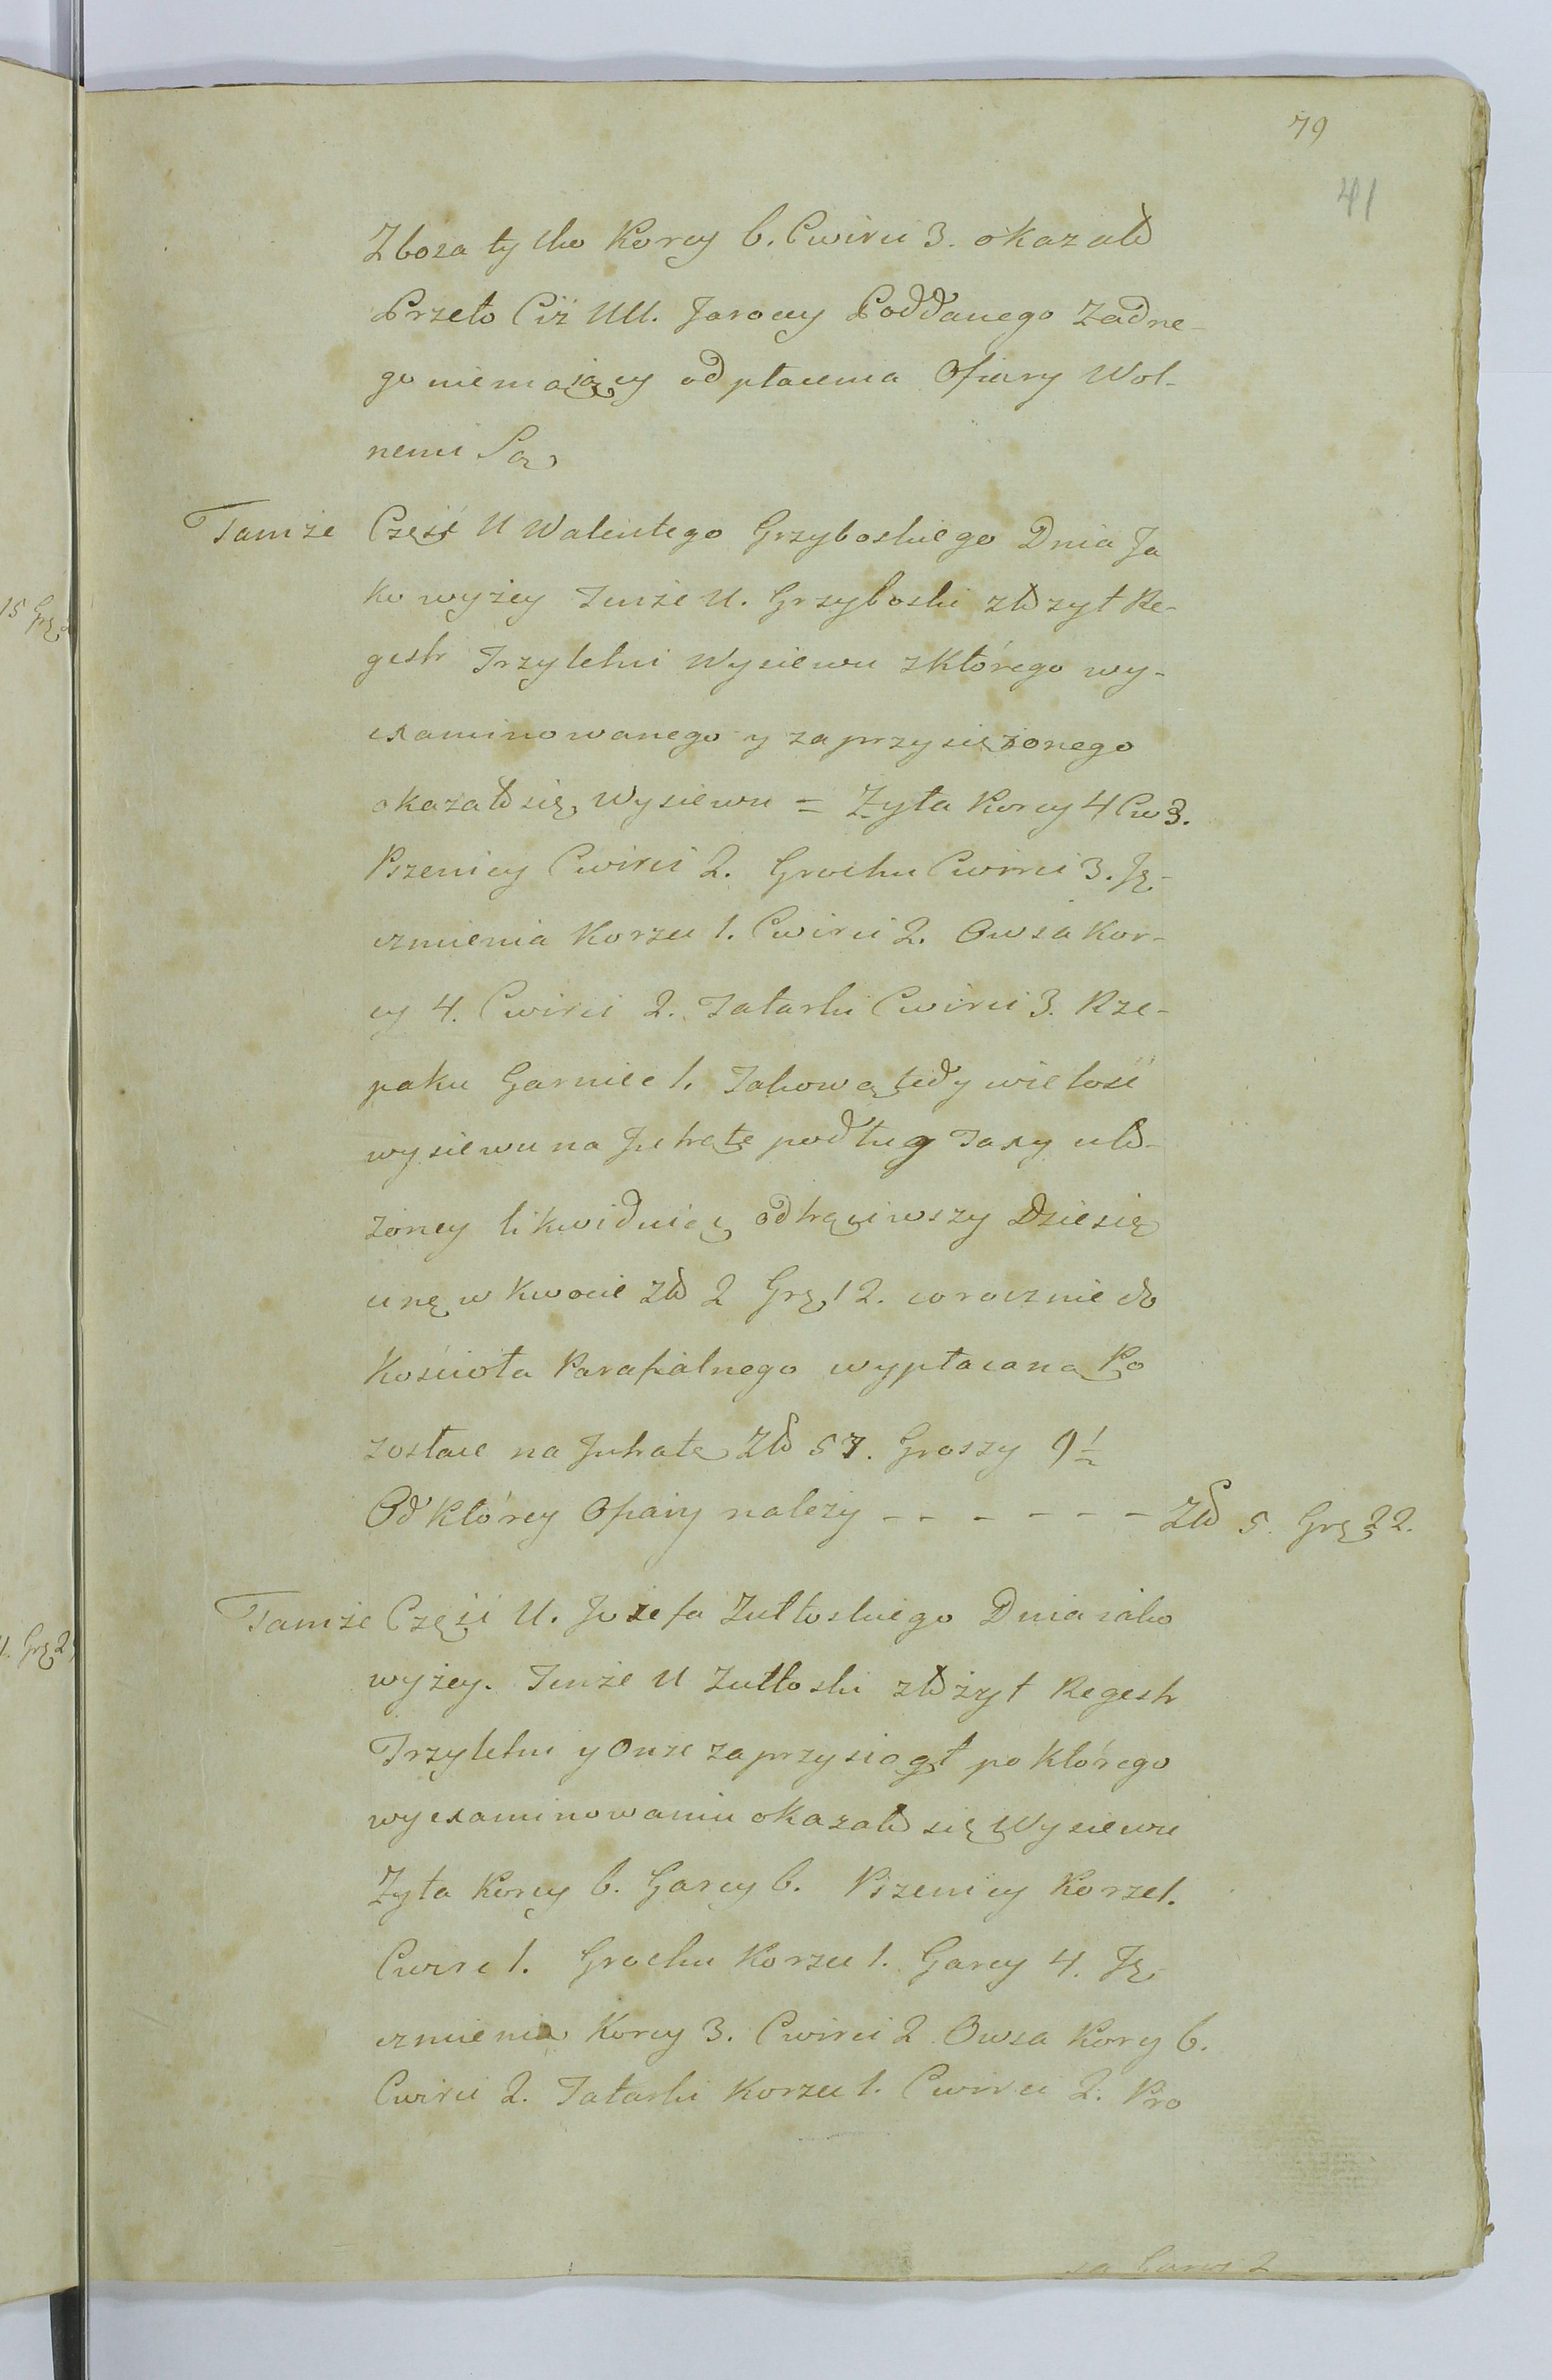 79
41
Zboza tylko Korcy 6. Cwirci 3. okazało
Przeto Ciż UU. Jaroccy Poddanego Zadne-
go niemaiący od płacenia Ofiary Wol-
nemi Są
Tamże Część U Walentego Grzyboskiego Dnia Ja
ko wyżey Tenże U. Grzyboski złozył Re-
gestr Trzyletni Wysiewu zktórego wy-
examinowanego y zaprzysiężonego
okazało się Wysiewu = Zyta Korcy 4 Cw 3.
Pszenicy Cwirci 2. Grochu Cwirci 3. Ję-
czmienia Korzec 1. Cwirci 2. Owsa Kor-
cy 4. Cwirci 2. Tatarki Cwirci 3. Rze-
paku Garniec 1. Takową tedy wielość
wysiewu na Intratę podług Taxy uło-
żoney likwiduiąc odtrąciwszy Dziesię
cinę w Kwocie Zło 2 Grz 12. corocznie do
Kościoła Parafialnego wypłacaną Po
zostaie na Intratę Zło 57. Groszy 9 1/2
Od Którey Ofiary należy - - - - - - - Zło 5. Grz 22.
Tamże Części U. Jozefa Zułtoskiego Dnia iako
wyżey. Tenże U Zułtoski złożył Regestr
Trzyletni y Onże zaprzysiągł po którego
wyexaminowaniu okazało się Wysiewu
Zyta Korcy 6. Garcy 6. Pszenicy Korzec 1.
Cwirc 1. Grochu Korzec 1. Garcy 4. Ję-
czmienia Korcy 3. Cwirci 2 Owsa Korcy 6.
Cwirci 2. Tatarki Korzec 1. Cwirci 2. Pro
sa Garcy 2
15 Grz
Grz 2